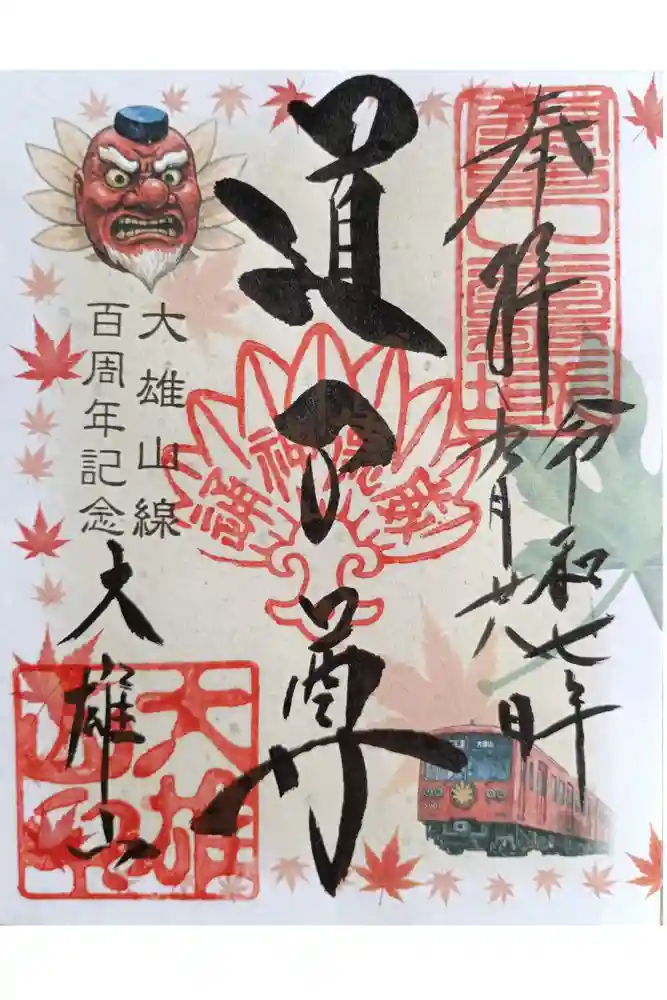 奉拝
令和七年
九月廿八日
道了尊
大雄山線
百周年記念
大雄山
大雄
山印
大雄山